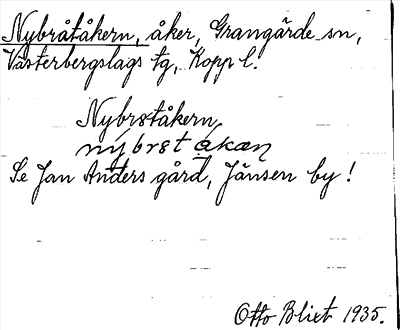 Nybråtåkern, åker, Grangärde sn,
Västerbergslags tg, Kopp l.
Nybrøtåkern
nybrøt åkæn
Se Jan Anders gård, Jänsen by!
Otto Blixt 1935.